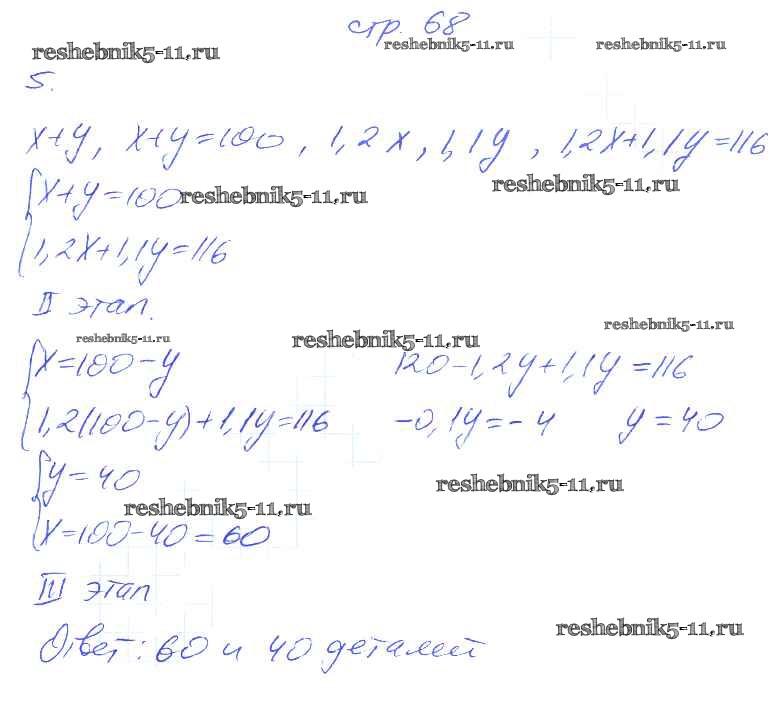 стр. 68
reshebnik5-11.ru reshebnik5-11.ru reshebnik5-11.ru
5.
x+y, x+y=100, 1,2x, 1,1y, 1,2x+1,1y=116
x+y=100 reshebnik5-11.ru reshebnik5-11.ru
1,2x+1,1y=116
II этап.
reshebnik5-11.ru reshebnik5-11.ru reshebnik5-11.ru
x=100-y 120-1,2y+1,1y=116
1,2(100-y)+1,1y=116 -0,1y=-4 y=40
y=40 reshebnik5-11.ru
reshebnik5-11.ru
x=100-40=60
III этап
Ответ: 60 и 40 деталей reshebnik5-11.ru